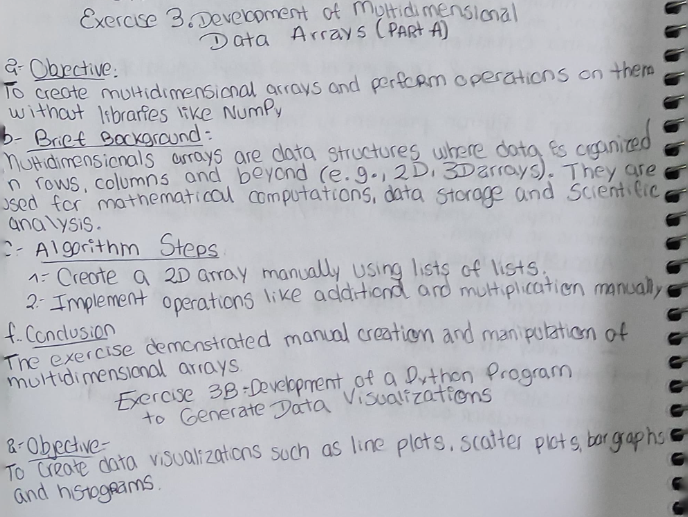 Exercise 3. Development of Multidimensional
Data Arrays (PART A)
a- Objective:
To create multidimensional arrays and perform operations on them
without libraries like NumPy
b- Brief Background:
Multidimensionals arrays are data structures where data is organized
n rows, columns and beyond (e.g., 2D, 3D arrays). They are
used for mathematical computations, data storage and Scientific
analysis.
c- Algorithm Steps
1- Create a 2D array manually using lists of lists.
2- Implement operations like additiond and multiplication manually
f- Conclusion
The exercise demonstrated manual creation and manipulation of
multidimensional arrays.
Exercise 3B-Development of a Python Program
to Generate Data Visualizations
a- Objective-
To Create data visualizations such as line plots, scatter plots, bar graphs
and histograms.